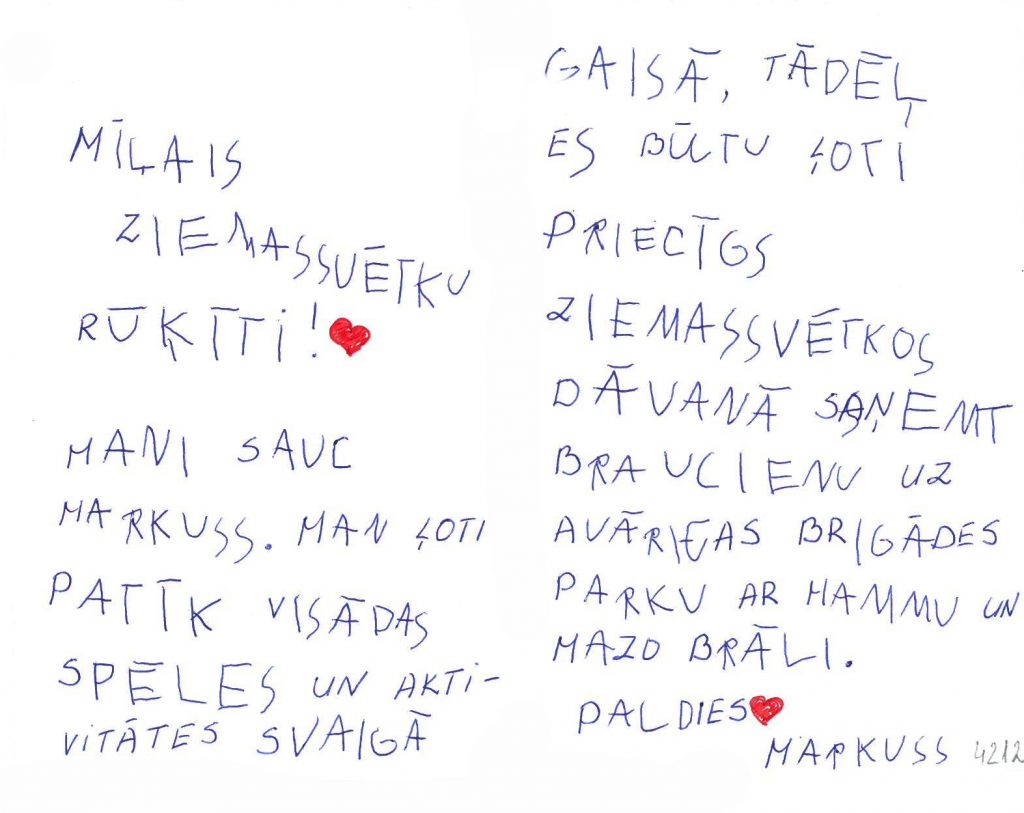 MĪĻAIS
ZIEMASSVĒTKU
RŪĶĪTI!
MANI SAUC
MARKUSS. MAN ĻOTI
PATĪK VISĀDAS
SPĒLES UN AKTI-
VITĀTES SVAIGĀ
GAISĀ, TĀDĒĻ
ES BŪTU ĻOTI
PRIECĪGS
ZIEMASSVĒTKOS
DĀVANĀ SAŅEMT
BRAUCIENU UZ
AVĀRIJAS BRIGĀDES
PARKU AR MAMMU UN
MAZO BRĀLI.
PALDIES
MARKUSS 4212